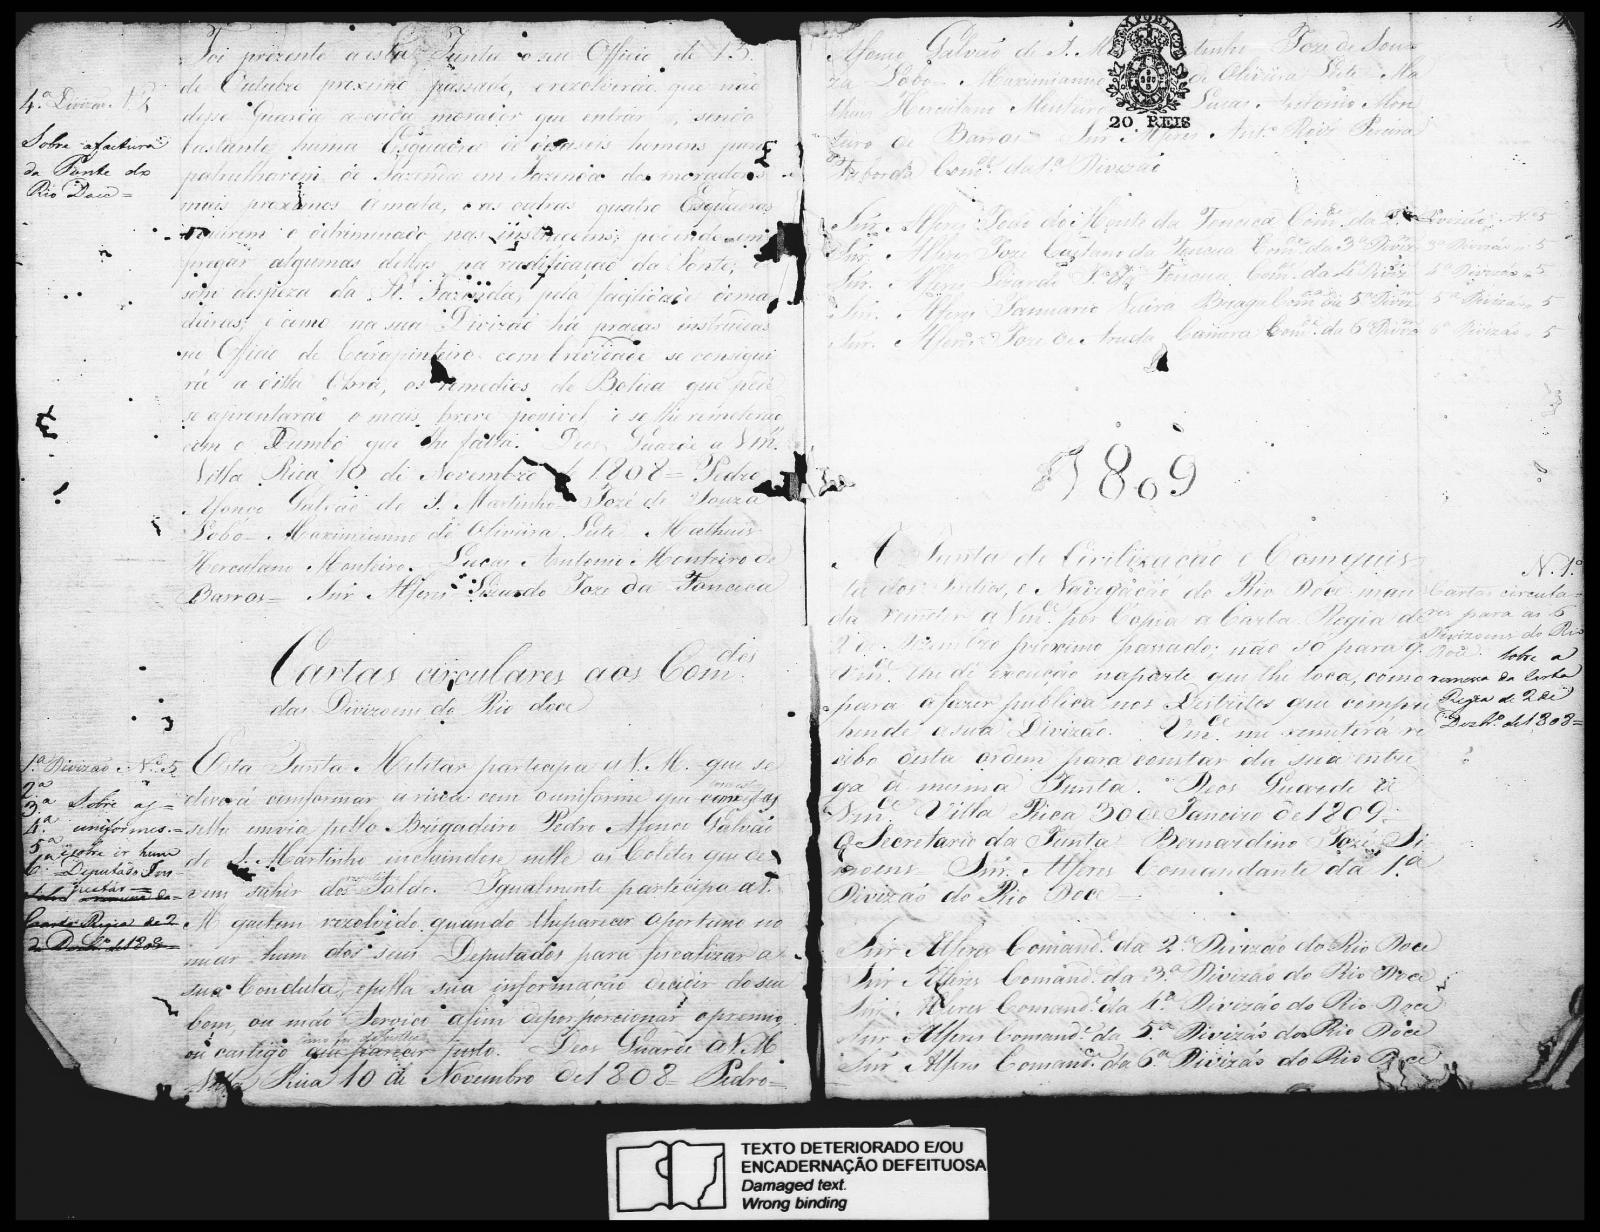 Foi prezente a esta Junta o seu Officio de 13
de Outubro proximo passado, e rezolverão que não
desse Guarda a cada morador que entrar, sendo
bastante huma Esquadra de dezaseis homens para
patrulharem de Fazenda em Fazenda dos moradores
mais proximos á mata, e as outras quatro Esquadras
seguirem o detriminado nas instrucçoens, podendo em
pregar algumas dellas na rectificação da Ponte, e
sem despeza da Rl. Fazenda, pela facilidade de ma
deiras; e como na sua Divizão há praças instruidas
no Officio de Carapinteiro com brevidade se consegui
rá a ditta Obra, os remedios de Botica que pede
se apromtarão o mais breve possivel e se lhe remeterão
com o Chumbo que lhe falta. Deos Guarde a Vmce.
Villa Rica 10 de Novembro de 1808 = Pedro
Afonço Galvão de S. Martinho = Jozé de Souza
Lobo = Maximianno de Oliveira Leite = Matheus
Herculano Monteiro = Lucas Antonio Monteiro de
Barros = Snr. Alferes Lizardo Joze da Fonceca
4.ª Divizão N.º 4
Sobre a factura
da Ponte do
Rio Doce =
Cartas circulares aos Com.des
das Divizoens do Rio doce
1.ª Divizão N.º 5
2.ª
3.ª Sobre os =
4.ª uniformes =
5.ª e sobre ir hum
6.ª Deputado Ins
pectar =
Sobre a remessa da
Carta Regia de 2
de Dezbr.º de 1808
Esta Junta Militar participa a V. M. que se
deverá comformar a risca com o uniforme que
se lhe invia pello Brigadeiro Pedro Afonço Galvão
de S. Martinho incluindose nelle os Coletes que de
vem sahir dos Soldo. Igualmente participa a V.
M. que tem rezolvido quando lhe parecer oportuno no
miar hum dos seus Deputados para fiscalizar a
sua Conduta, e pella sua informação decidir do seu
bom, ou máo Serviço afim de porporcionar o premio
ou castigo que parecer justo. Deos Guarde a V. M.
Villa Rica 10 de Novembro de 1808 = Pedro =
Afonço Galvão de S. Martinho = Joze de Sou
za Lobo = Maximianno de Oliveira Leite = Ma
theus Herculano Monteiro = Lucas Antonio Mon
teiro de Barros = Snr. Alferes Ant.º Roiz Pereira
Taborda Com.de da 1.ª Divizão
20 REIS
Snr. Alferes João do Monte da Fonceca Com.de da 2.ª Divizão N.º 5
Snr. Alferes Joze Caetano da Fonceca Com.de da 3.ª Diviz. 3.ª Divizão = 5
Snr. Alferes Lizardo J.e da Fonceca Com.de da 4.ª Diviz. 4.ª Divizão = 5
Snr. Alferes Januario Vieira Braga Com.de da 5.ª Diviz. 5.ª Divizão = 5
Snr. Alferes Joze de Aruda Camera Com.de da 6.ª Diviz. 6.ª Divizão = 5
1809
A Junta de Civilização e Comquis
ta dos Indios, e Navegação do Rio Doce man
da remeter a Vm.ce por Copia a Carta Regia de
2 de Dezembro proximo passado; não só para q.
Vm.ce lhe dê execução na parte que lhe toca, como
para a fazer publica nos Destritos que compre
hende a sua Divizão. Vm.ce me remeterá re
cibo desta ordem para constar da sua entre
ga á mesma Junta. Deos Guarde a
Vm.ce Villa Rica 30 de Janeiro de 1809.
O Secretario da Junta Bernardino Jozé Si
moens = Snr. Alferes Comandante da 1.ª
Divizão do Rio Doce =
N. 1.º
Cartas circula=
res para as 6
Divizoens do Rio
Doce. Sobre a
remessa da Carta
Regia de 2 de
Dezbr.º de 1808=
Snr. Alferes Comand.e da 2.ª Divizão do Rio Doce
Snr. Alferes Comand.e da 3.ª Divizão do Rio Doce
Snr. Alferes Comand.e da 4.ª Divizão do Rio Doce
Snr. Alferes Comand.e da 5.ª Divizão do Rio Doce
Snr. Alferes Comand.e da 6.ª Divizão do Rio Doce
TEXTO DETERIORADO E/OU
ENCADERNAÇÃO DEFEITUOSA
Damaged text.
Wrong binding